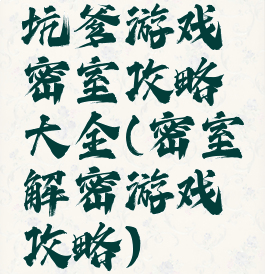 坑爹游戏
密室攻略
大全(密室
解密游戏
攻略)